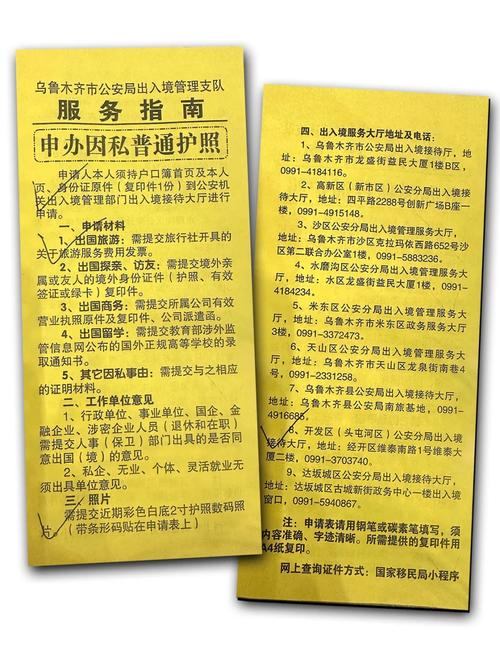 乌鲁木齐市公安局出入境管理支队
服务指南
申办因私普通护照
申请人本人须持户口簿首页及本人
页、身份证原件（复印件1份）到公安机
关出入境管理部门出入境接待大厅进行
申请。
一、申请材料
1、出国旅游：需提交旅行社开具的
关于旅游服务费用发票。
2、出国探亲、访友：需提交境外亲
属或友人的境外身份证件（护照、有效
签证或绿卡）复印件。
3、出国商务：需提交所属公司有效
营业执照原件及复印件、公司派遣函。
4、出国留学：需提交教育部涉外监
管信息网公布的国外正规高等学校的录
取通知书。
5、其它因私事由：需提交与之相应
的证明材料。
二、工作单位意见
1、行政单位、事业单位、国企、金
融企业、涉密企业人员（退休和在职）
需提交人事（保卫）部门出具的是否同
意出国（境）的意见。
2、私企、无业、个体、灵活就业无
须出具单位意见。
三、照片
需提交近期彩色白底2寸护照数码照
片（带条形码贴在申请表上）
四、出入境服务大厅地址及电话：
1、乌鲁木齐市公安局出入境接待厅，地
址：乌鲁木齐市龙盛街益民大厦1楼B区，
0991-4184116。
2、高新区（新市区）公安分局出入境接
待大厅，地址：四平路2288号创新广场B座一
楼，0991-4915148。
3、沙区公安分局出入境管理服务大厅，
地址：乌鲁木齐市沙区克拉玛依西路652号沙
区第二联合办公室1楼，0991-5883236。
4、水磨沟区公安分局出入境管理服务大
厅，地址：水区龙盛街益民大厦1楼，0991-
4184234。
5、米东区公安分局出入境管理服务大
厅，地址：乌鲁木齐市米东区政务服务大厅
3楼，0991-3372473。
6、天山区公安分局出入境管理服务大
厅，地址：乌鲁木齐市天山区龙泉街南巷4
号，0991-2331258。
7、乌鲁木齐县公安局出入境接待大厅，
地址：乌鲁木齐县公安局南旅基地，0991-
4916685。
8、开发区（头屯河区）公安分局出入境
接待大厅，地址：经开区维泰南路1号维泰大
厦二楼，0991-3703740。
9、达坂城区公安分局出入境接待大厅，
地址：达坂城区古城新街政务中心一楼出入境
窗口，0991-5940867。
注：申请表请用钢笔或碳素笔填写，须
内容准确、字迹清晰。所需提供的复印件用
A4纸复印。
网上查询证件方式：国家移民局小程序